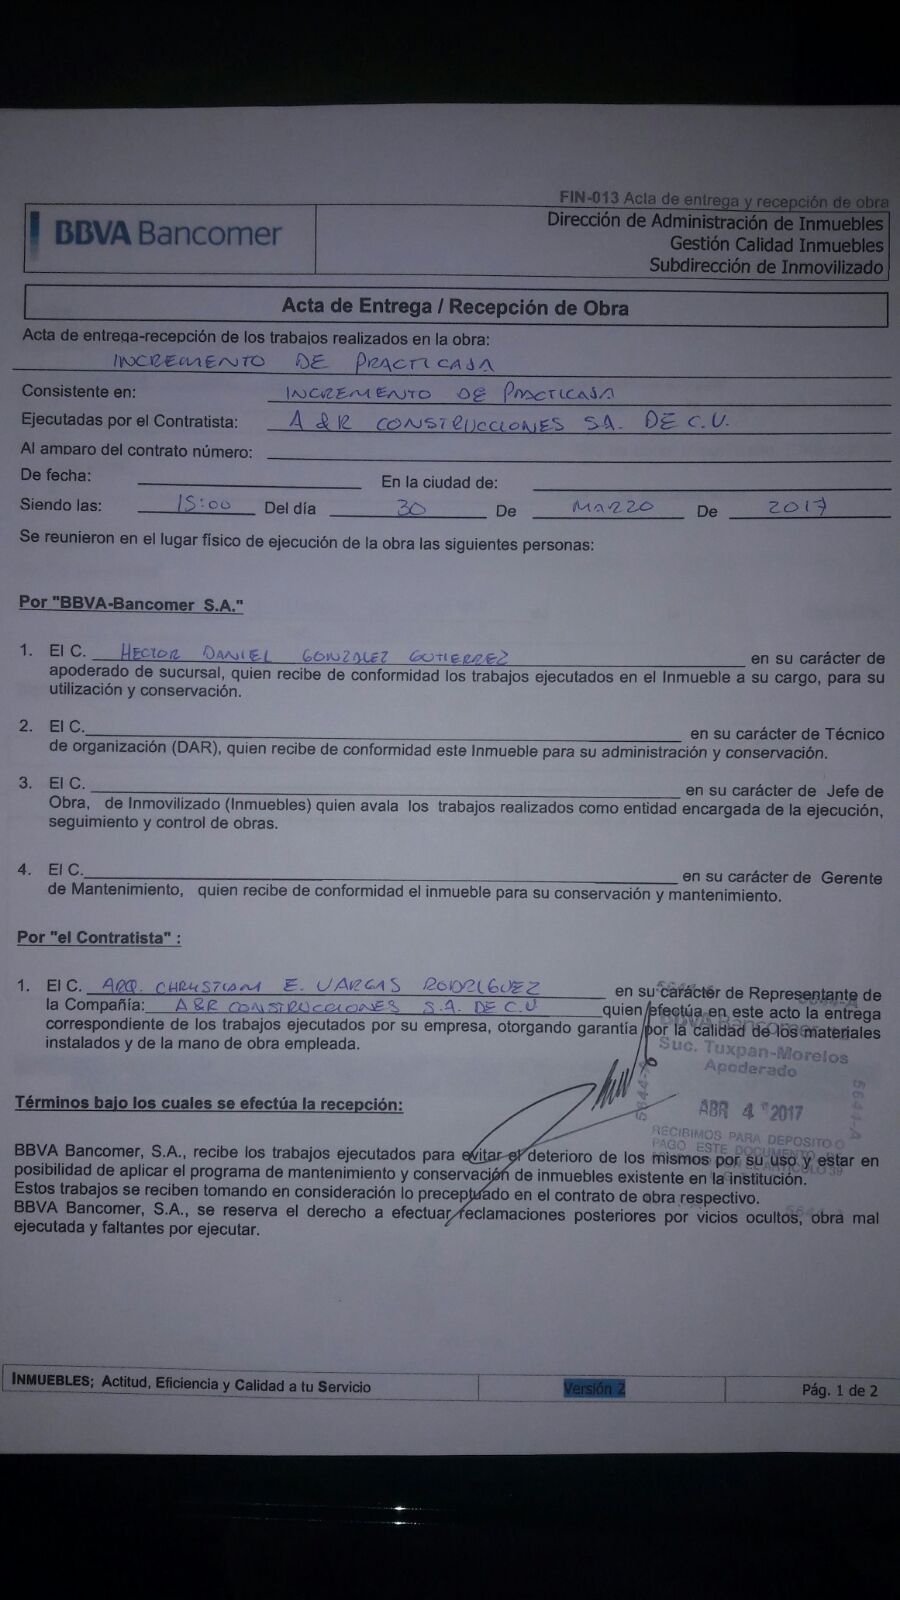 FIN-013 Acta de entrega y recepción de obra
BBVA Bancomer
Dirección de Administración de Inmuebles
Gestión Calidad Inmuebles
Subdirección de Inmovilizado
Acta de Entrega / Recepción de Obra
Acta de entrega-recepción de los trabajos realizados en la obra:
INCREMENTO DE PRACTICASA
Consistente en: INCREMENTO DE PRACTICASA
Ejecutadas por el Contratista: A & R CONSTRUCCIONES SA. DE C.V.
Al amparo del contrato número:
De fecha: En la ciudad de:
Siendo las: 15:00 Del día 30 De MARZO De 2017
Se reunieron en el lugar físico de ejecución de la obra las siguientes personas:
Por "BBVA-Bancomer S.A."
1. El C. HECTOR DANIEL GONZALEZ GUTIERREZ en su carácter de
apoderado de sucursal, quien recibe de conformidad los trabajos ejecutados en el Inmueble a su cargo, para su
utilización y conservación.
2. El C. en su carácter de Técnico
de organización (DAR), quien recibe de conformidad este Inmueble para su administración y conservación.
3. El C. en su carácter de Jefe de
Obra, de Inmovilizado (Inmuebles) quien avala los trabajos realizados como entidad encargada de la ejecución,
seguimiento y control de obras.
4. El C. en su carácter de Gerente
de Mantenimiento, quien recibe de conformidad el inmueble para su conservación y mantenimiento.
Por "el Contratista" :
1. El C. ARQ. CHRISTIAM E. VARGAS RODRÍGUEZ en su carácter de Representante de
la Compañía: A&R CONSTRUCCIONES S.A. DE C.V quien efectúa en este acto la entrega
correspondiente de los trabajos ejecutados por su empresa, otorgando garantía por la calidad de los materiales
instalados y de la mano de obra empleada.
5644-A
BBVA Bancomer
Suc. Tuxpan-Morelos
Apoderado
ABR 4 2017
5644-A
5644-A
RECIBIMOS PARA DEPOSITO O
PAGO ESTE DOCUMENTO
Términos bajo los cuales se efectúa la recepción:
BBVA Bancomer, S.A., recibe los trabajos ejecutados para evitar el deterioro de los mismos por su uso y estar en
posibilidad de aplicar el programa de mantenimiento y conservación de inmuebles existente en la institución.
Estos trabajos se reciben tomando en consideración lo preceptuado en el contrato de obra respectivo.
BBVA Bancomer, S.A., se reserva el derecho a efectuar reclamaciones posteriores por vicios ocultos, obra mal
ejecutada y faltantes por ejecutar.
INMUEBLES; Actitud, Eficiencia y Calidad a tu Servicio
Versión 2
Pág. 1 de 2